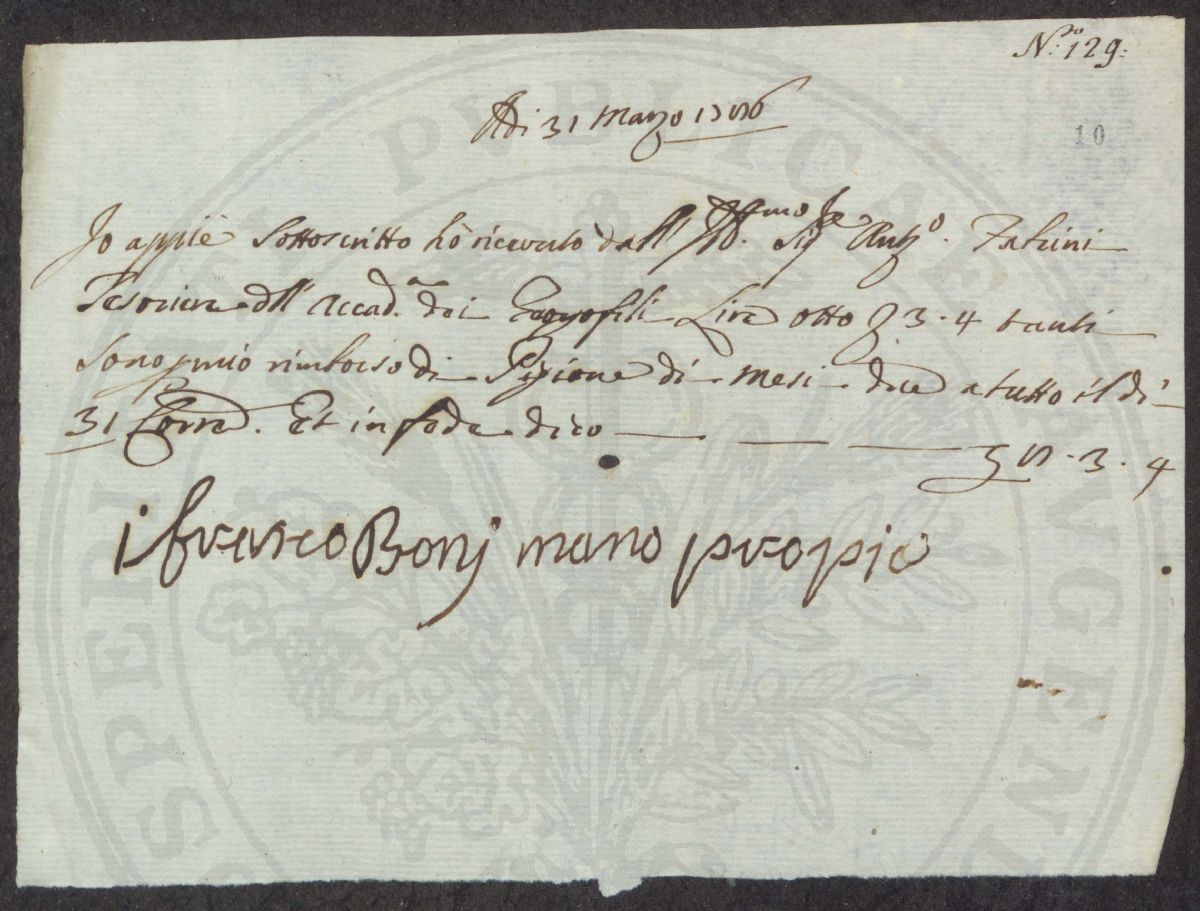 N.º 129:
Adi 31 Marzo 1786
10
Io appiè Sottoscritto hò ricevuto dall' Ill.mo Sig.re Ant.o Fabrini
Tesoriere dll' Accad.a dei Georgofili Lire otto 3. 4 tanti
sono p mio rimborso di Pigione di mesi due a tutto il dì
31 Corr.e. Et in fede dico 8. 3. 4
i francesco Bonj mano propia
PROSPERITATI PUBLICAE AUGENDAE